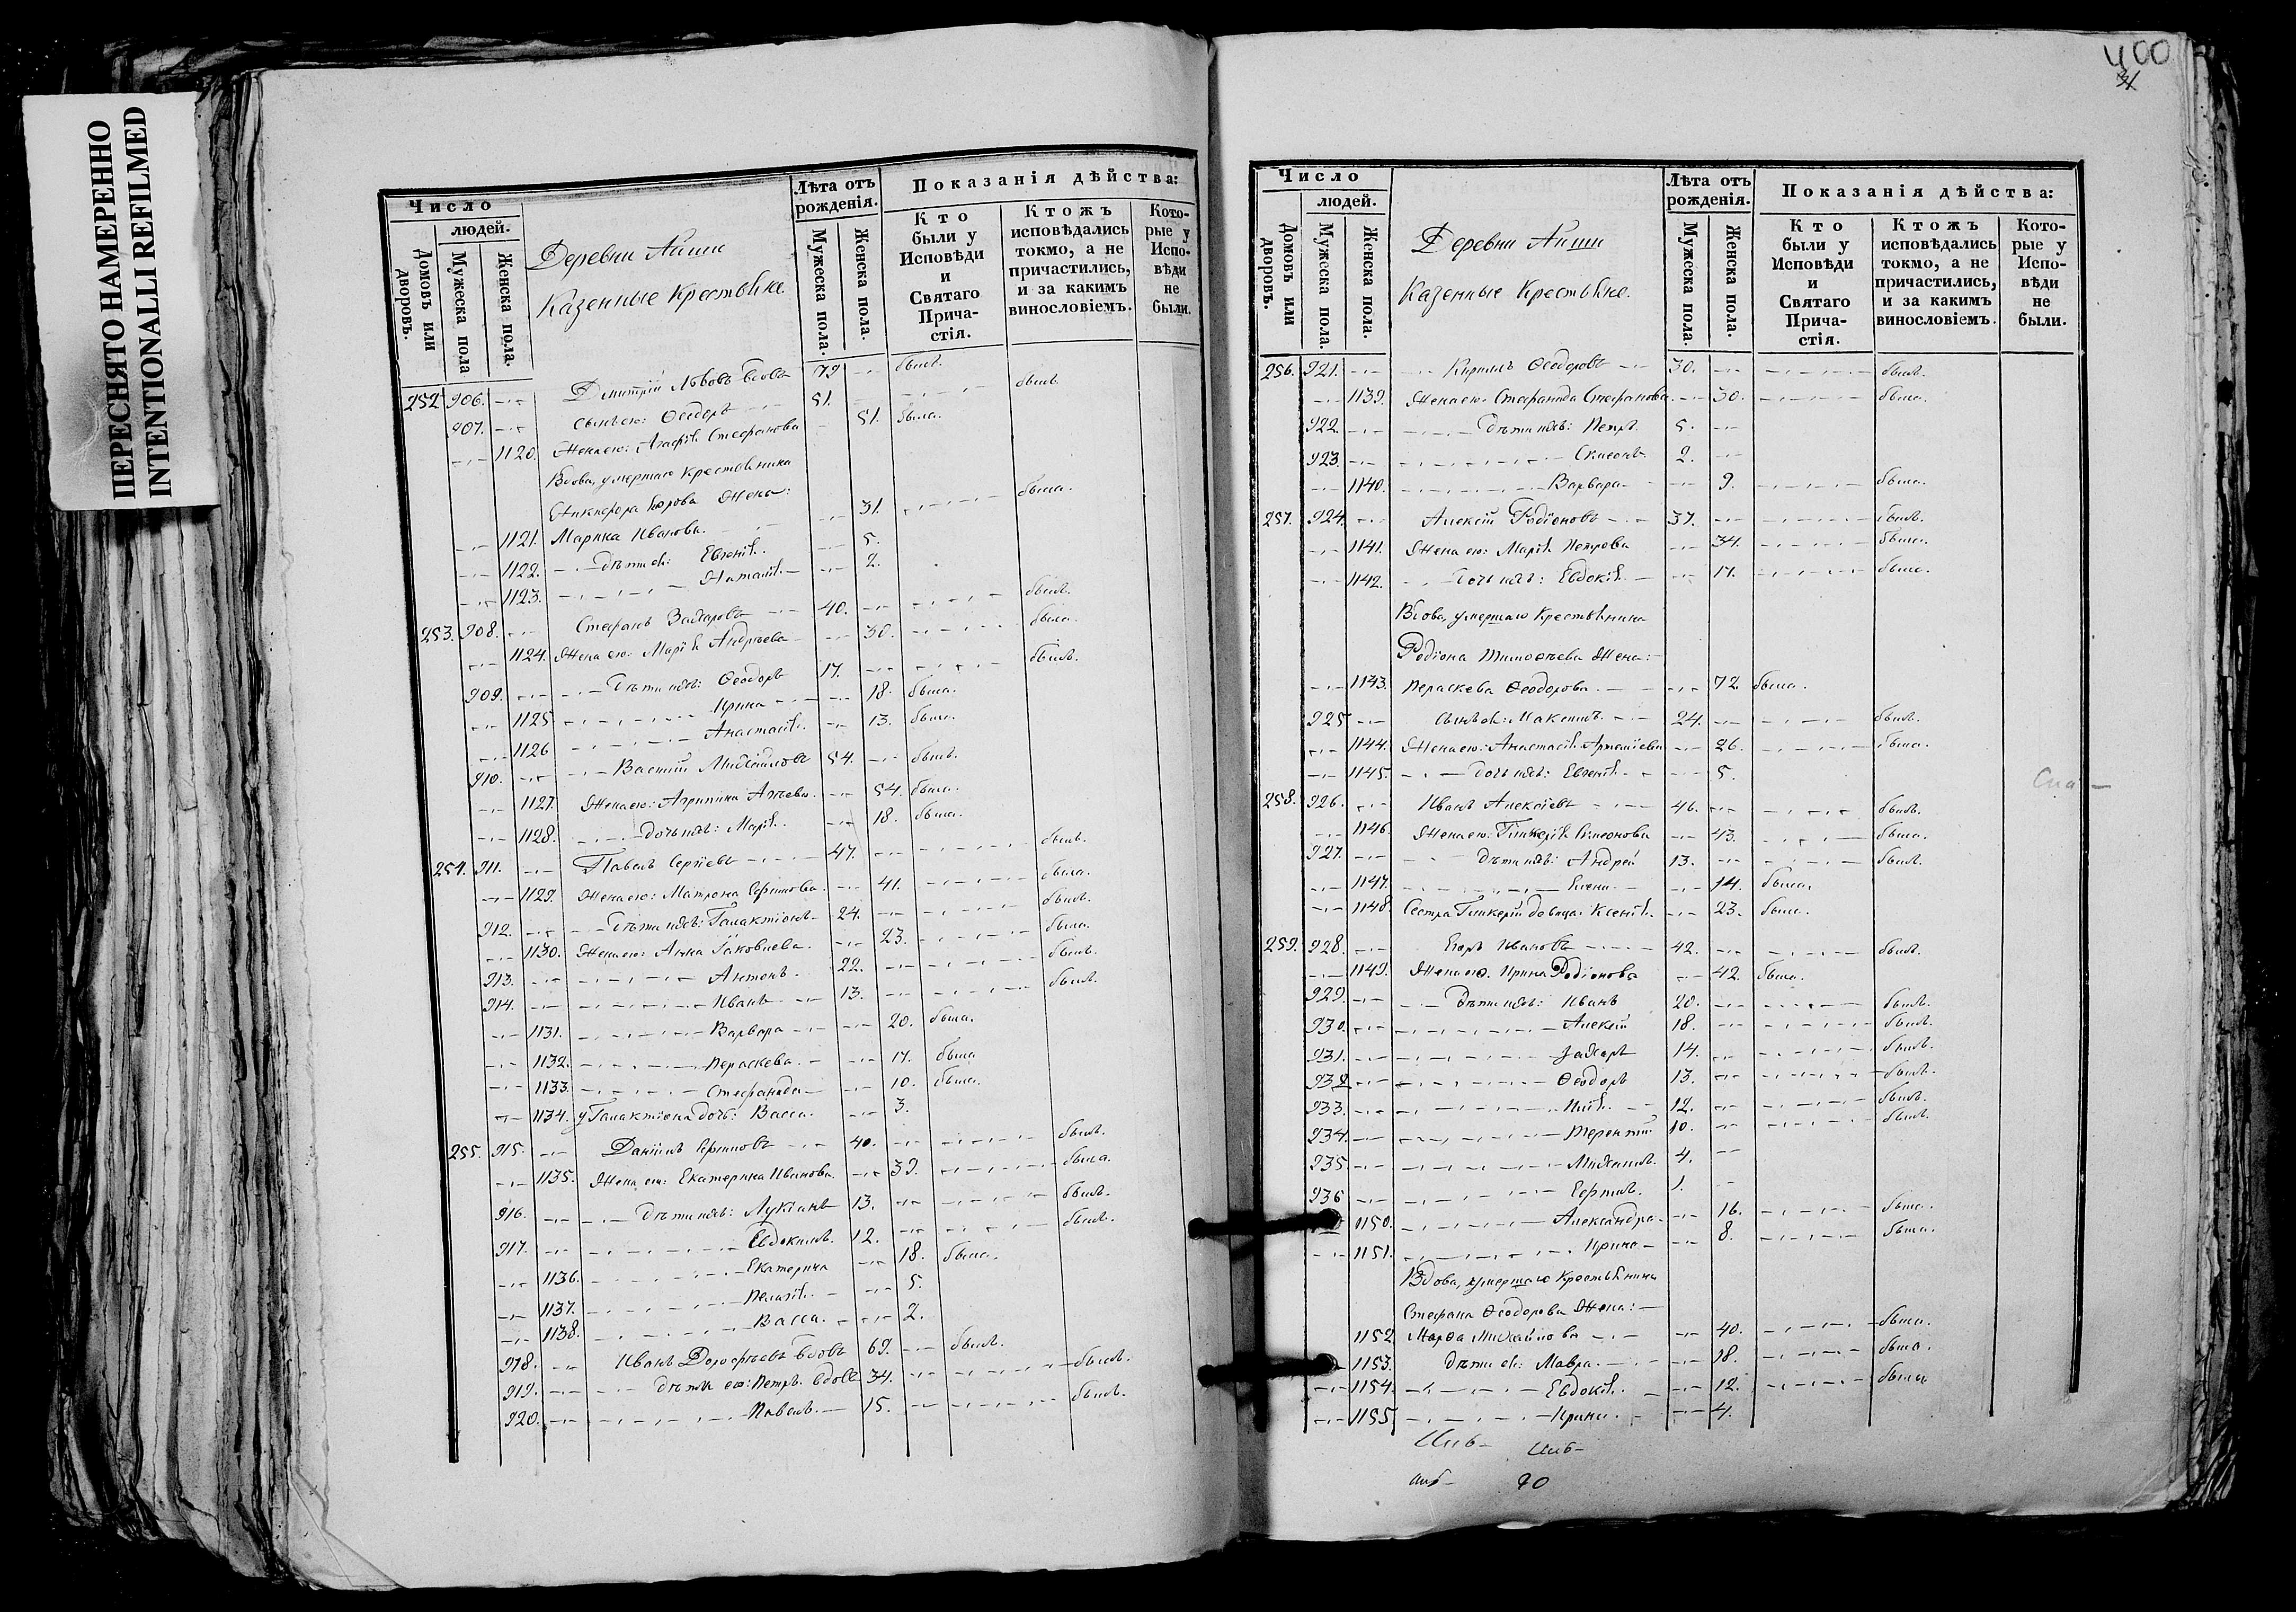 ПЕРЕСНЯТО НАМЕРЕННО
INTENTIONALLI REFILMED
Число
людей.
Домовъ или дворовъ.
Мужеска пола
Женска пола.
Деревни Аиши
Казенные Крестьяне.
Лѣта отъ рожденія.
Мужеска пола.
Женска пола.
Показанія дѣйства:
Кто были у Исповѣди и Святаго Прича-стія.
Ктожъ исповѣдались токмо, а не причастились, и за какимъ винословіемъ.
Кото-рые у Испо-вѣди не были.
252 906. Дмитрій Львовъ вдовъ 79 былъ.
907. сынъ ею: Ѳеодоръ 51. былъ.
1120. Жена ею: Агафія Стефанова 51. была.
Вдова, умершаго Крестьянина
Никифора Жена:
1121. Марина Иванова. 31. была.
1122. дѣти ея: Евгенія. 5.
1123. Наталія 2.
253. 908. Стефанъ Захаровъ 40. былъ.
1124. Жена ею: Марія Андреева 30. была.
909. Дѣти ихъ: Ѳеодоръ 17. былъ.
1125 Ирина 18. была.
1126 Анастасія. 13. была.
910. Василій Михайловъ 54. былъ.
1127. Жена ею: Агрипина 54. была.
1128. дочь ихъ: Марія. 18. была.
254. 911. Павелъ Сергіевъ 47. былъ.
1129. Жена ею: Матрона Ефимова. 41. была.
912. Дѣти ихъ: Галактіонъ 24. былъ.
1130. Жена ею: Анна Іаковлева. 23. была.
913. Антонъ. 22. былъ.
914. Иванъ 13. былъ.
1131. Варвара 20. была.
1132. Параскева. 17. была
1133. Стефанида 10. была.
1134. у Галактіона дочь: Васса. 3.
255. 915. Даніилъ Ефимовъ 40. былъ.
1135. Жена ею: Екатерина Иванова. 39. была.
916. Дѣти ихъ: Лукіанъ 13. былъ.
917. Евдокимъ. 12. былъ.
1136. Екатерина 18. была.
1137. Пелагія. 5.
1138. Васса. 2.
918. Иванъ Дорофѣевъ вдовъ 69. былъ.
919. Дѣти ею: Петръ. вдовъ 34. былъ.
920. Павелъ. 15. былъ.
400
31
Число
людей.
Домовъ или дворовъ.
Мужеска пола.
Женска пола.
Деревни Аиши
Казенные Крестьяне.
Лѣта отъ рожденія.
Мужеска пола.
Женска пола.
Показанія дѣйства:
Кто были у Исповѣди и Святаго Прича-стія.
Ктожъ исповѣдались токмо, а не причастились, и за какимъ винословіемъ.
Кото-рые у Испо-вѣди не были.
256. 921. Кирилъ Ѳеодоровъ 30. былъ.
1139. Жена ею: Стефанида Стефанова. 30. была.
922. дѣти ихъ: Петръ. 5.
923. Симеонъ. 2.
1140. Варвара 9. была.
257. 924. Алексій Родіоновъ 37. былъ.
1141. Жена ею: Марія Петрова 34. была.
1142. дочь ихъ: Евдокія. 17. была.
Вдова, умершаго Крестьянина
Родіона Тимоѳеева Жена:
1143. Параскева Ѳеодорова. 72 была.
925 сынъ ея: Максимъ. 24. былъ.
1144. Жена ею: Анастасія 26. была.
1145. дочь ихъ: Евгенія. 5.
258. 926. Иванъ Алексіевъ 46. былъ.
1146. Жена ею: Гликерія Симеонова 43. была.
927. дѣти ихъ: Андрей 13. былъ.
1147. Елена. 14. была.
1148. Сестра Гликеріи девица: Ксенія. 23. была.
259. 928. Егоръ Ивановъ 42. былъ.
1149. Жена ею. Ирина Родіонова 42. была.
929. Дѣти ихъ: Иванъ 20. былъ.
930. Алексій 18. былъ.
931. Захаръ 14. былъ.
932 Ѳеодоръ 13. былъ.
933. Илія. 12. былъ.
934. Терентій 10. былъ.
935 Михаилъ. 4.
936 Ефимъ. 1.
1150. Александра. 16. была.
1151. Ирина 8. была.
Вдова, умершаго Крестьянина
Стефана Ѳеодорова Жена:
1152. Марѳа Михайлова 40. была.
1153. дѣти ея: Мавра. 18. была.
1154. Евдокія. 12. была.
1155. Ирина. 4.